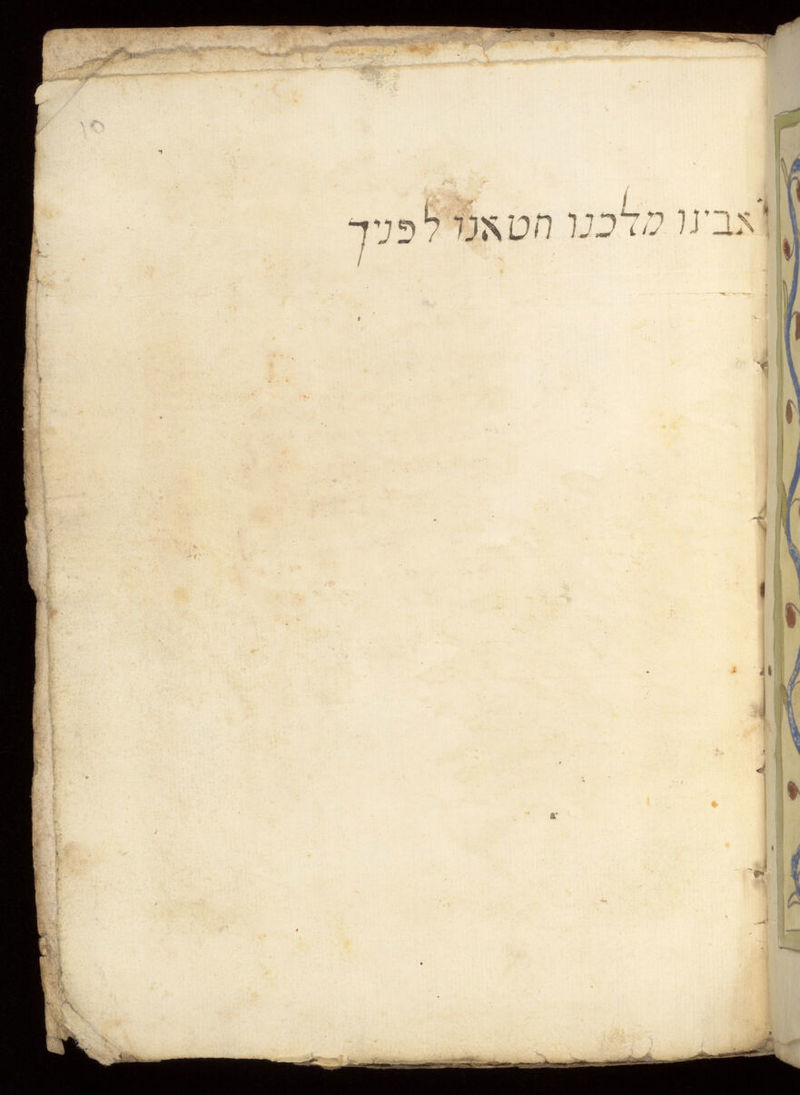 10
אבינו מלכנו חטאנו לפניך